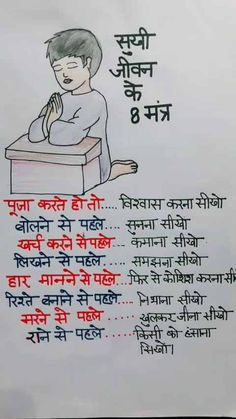 सुखी
जीवन
के
8 मंत्र
पूजा करते हो तो.... विश्वास करना सीखो
बोलने से पहले.... सुनना सीखो
खर्च करने से पहले... कमाना सीखो
लिखने से पहले.... समझना सीखो
हार मानने से पहले...फिर से कोशिश करना सी
रिश्ते बनाने से पहले.... निभाना सीखो
मरने से पहले ..... खुलकर जीना सीखो
रोने से पहले..... किसी को हंसाना
सिखो।